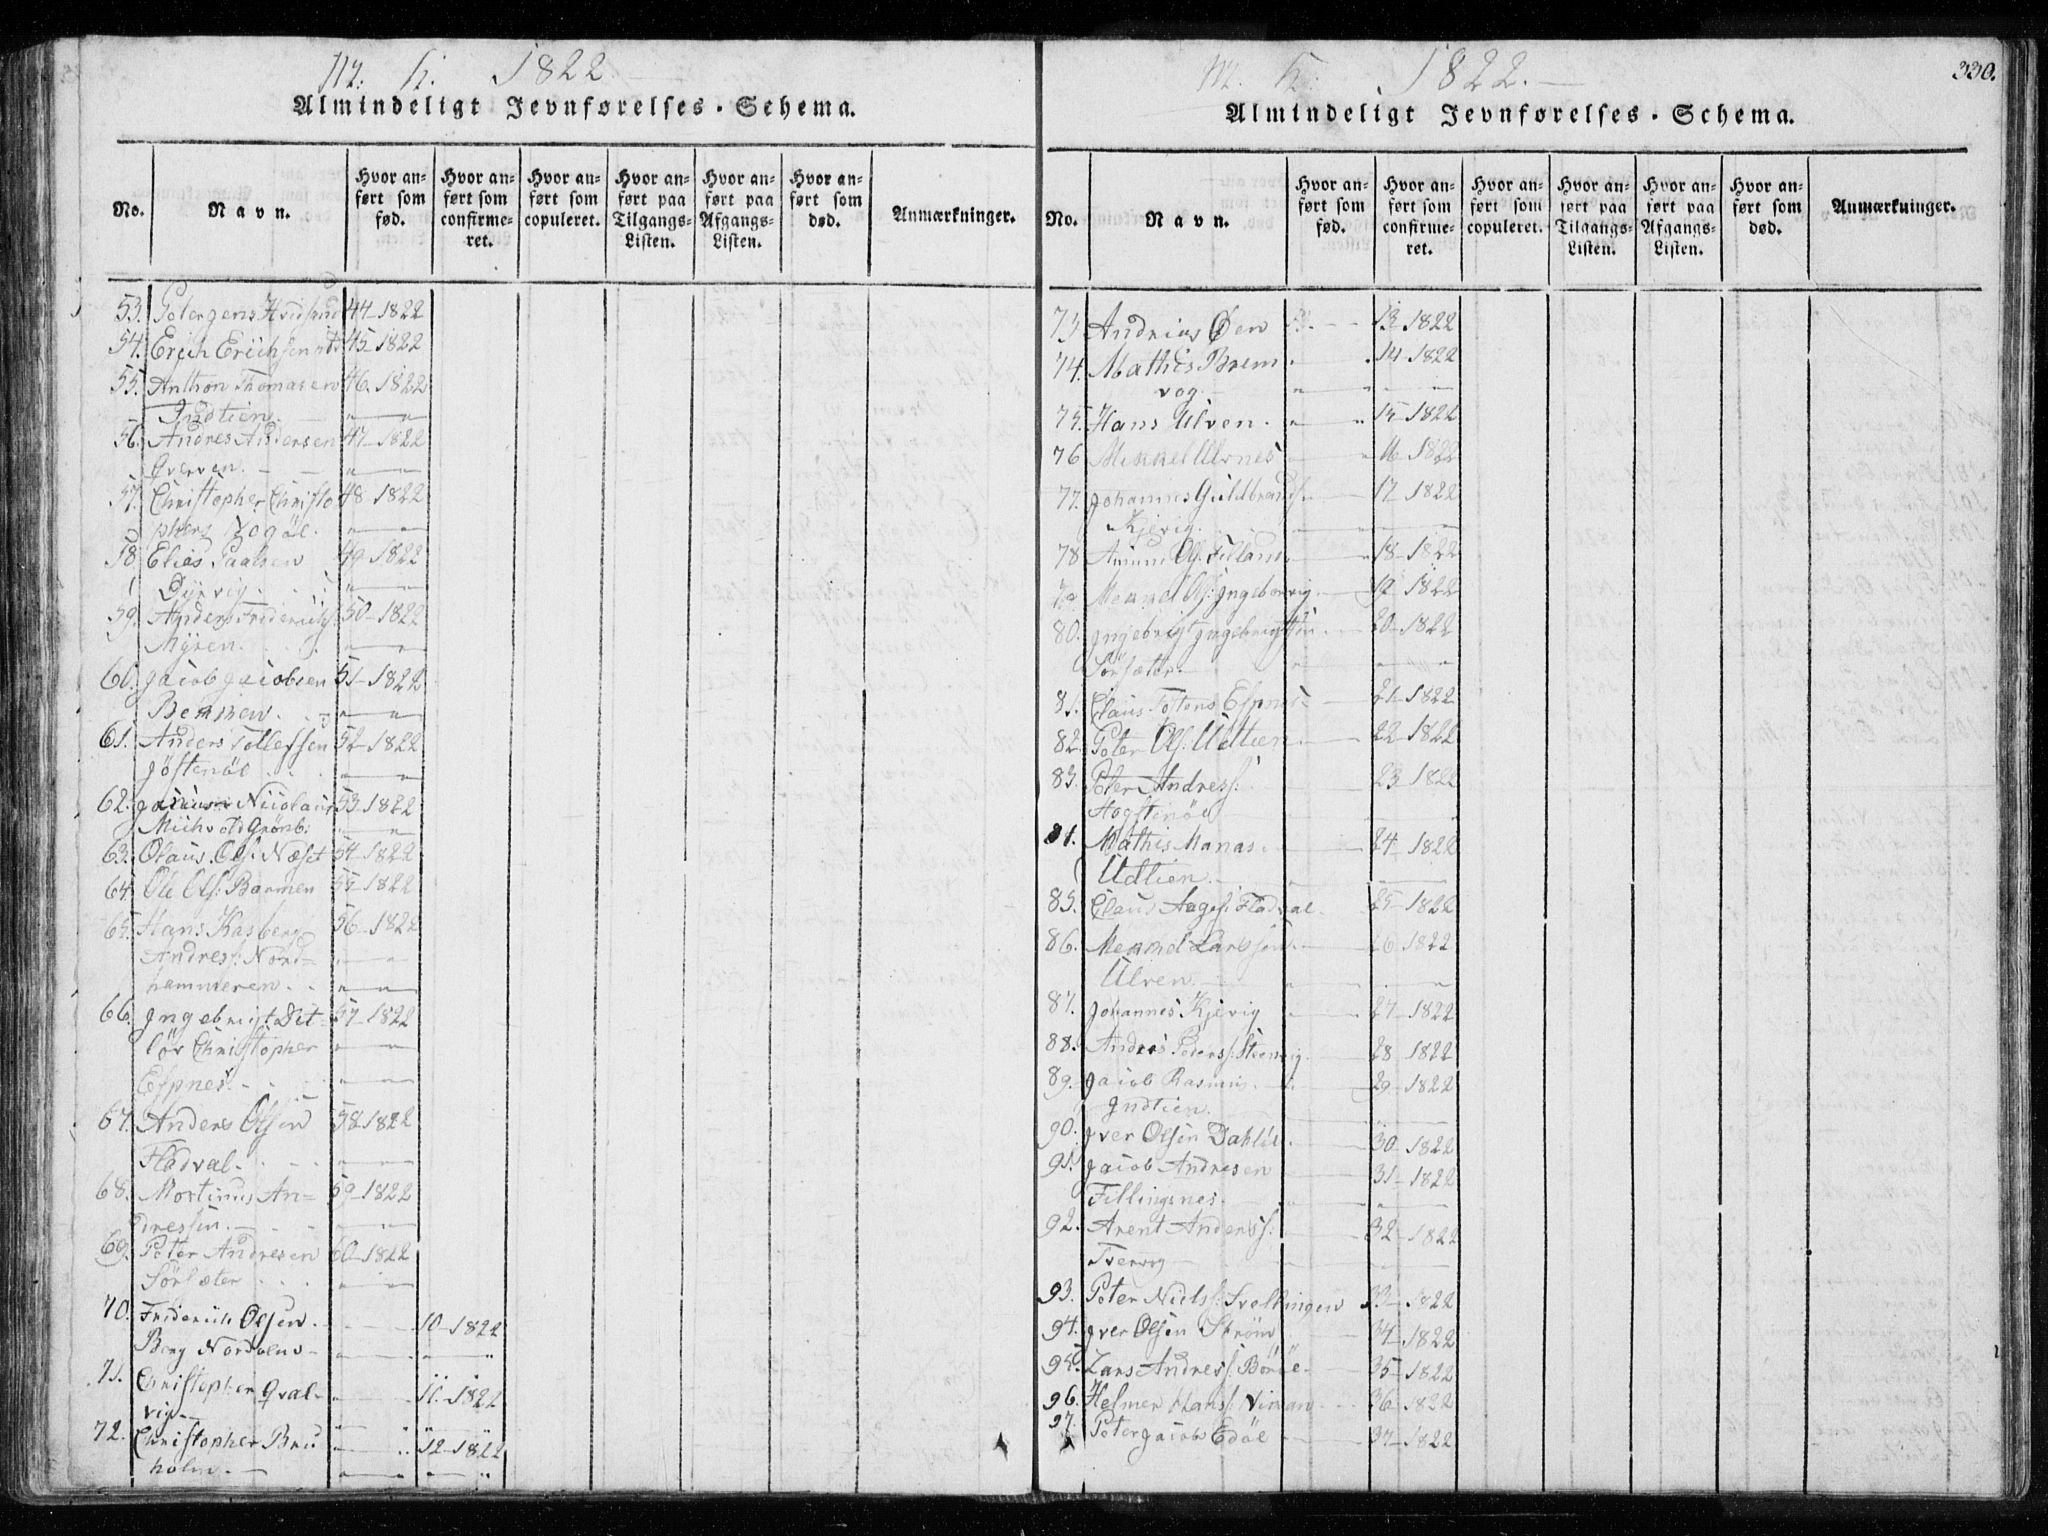 M. K. 1822
Almindeligt Jevnførelses-Schema.
No. Navn. Hvor anført som fød. Hvor anført som confirmeret. Hvor anført som copuleret. Hvor anført paa Tilgangs-Listen. Hvor anført paa Afgangs-Listen. Hvor anført som død. Anmærkninger.
53. 44-1822
54. Erich Erichsen 45-1822
55. Anthon Thomasen 46-1822
Indtien.
56. Andres Andersen 47-1822
57. Christopher Christo 48-1822
phers
58. Elias Paalsen 49-1822
Dyrvig.
59. Anders Friderichs: 50-1822
Myren.
60. Jacob Jacobsen 51-1822
61. Anders Tollefsen 52-1822
Jöstenöe
62. Nicolaus 53-1822
63. Olaus Ols: Næset 54-1822
64. Ole Ols: Barmen 55-1822
65. Hans Kasberg 56-1822
Andress: Nord=
hammeren.
66. Ingebrigt Det- 57-1822
löv Christopher
Espnes.
67. Anders Olsen 58-1822
Fladval.
68. Mortinus An= 59-1822
dressen.
69. Peter Andresen 60-1822
Sörsæter
70. Friderich Olsen 10-1822
Berg
71. Christopher Qval- 11-1822
vig
72. Christopher Bru 12-1822
holm.
M. K. 1822. 330.
Almindeligt Jevnførelses-Schema.
No. Navn. Hvor anført som fød. Hvor anført som confirmeret. Hvor anført som copuleret. Hvor anført paa Tilgangs-Listen. Hvor anført paa Afgangs-Listen. Hvor anført som død. Anmærkninger.
73. Andrias Öen 13-1822
74. Mathis Brem 14-1822
vog.
75. Hans Ulven. 15-1822
76 Mikkel Ulvnes 16-1822
77. Johannes Guldbrands: 17-1822
Kjevig.
78 Ols: Filland 18-1822
79. Ols: Ingeborvig. 19-1822
80. Ingebrigt Ingebrigtsen 20-1822
Sörsæter.
81. Claus Tostens Espnes 21-1822
82. Peter Ols: Udtien. 22-1822
83. Peter Andress: 23-1822
Hogstenöe
84. Mathis Manas. 24-1822
Udtien.
85. Claus Aages: Fladval. 25-1822
86. Larssen. 26-1822
Ulven.
87. Johannes Kjevig 27-1822
88. Andres Peders: Steenvig 28-1822
89. Jacob Rasmus. 29-1822
Indtien.
90. Iver Olsen Dahlöe. 30-1822
91. Jacob Andresen 31-1822
Fillingsnes.
92. Arent Anderss: 32-1822
Tvervog
93. Peter Niels: Svellingen 33-1822
94. Iver Olsen Ström 34-1822
95. Lars Andress: Böröe 35-1822
96. Helmer Hans: 36-1822
97. Peter Jacob Edöe 37-1822